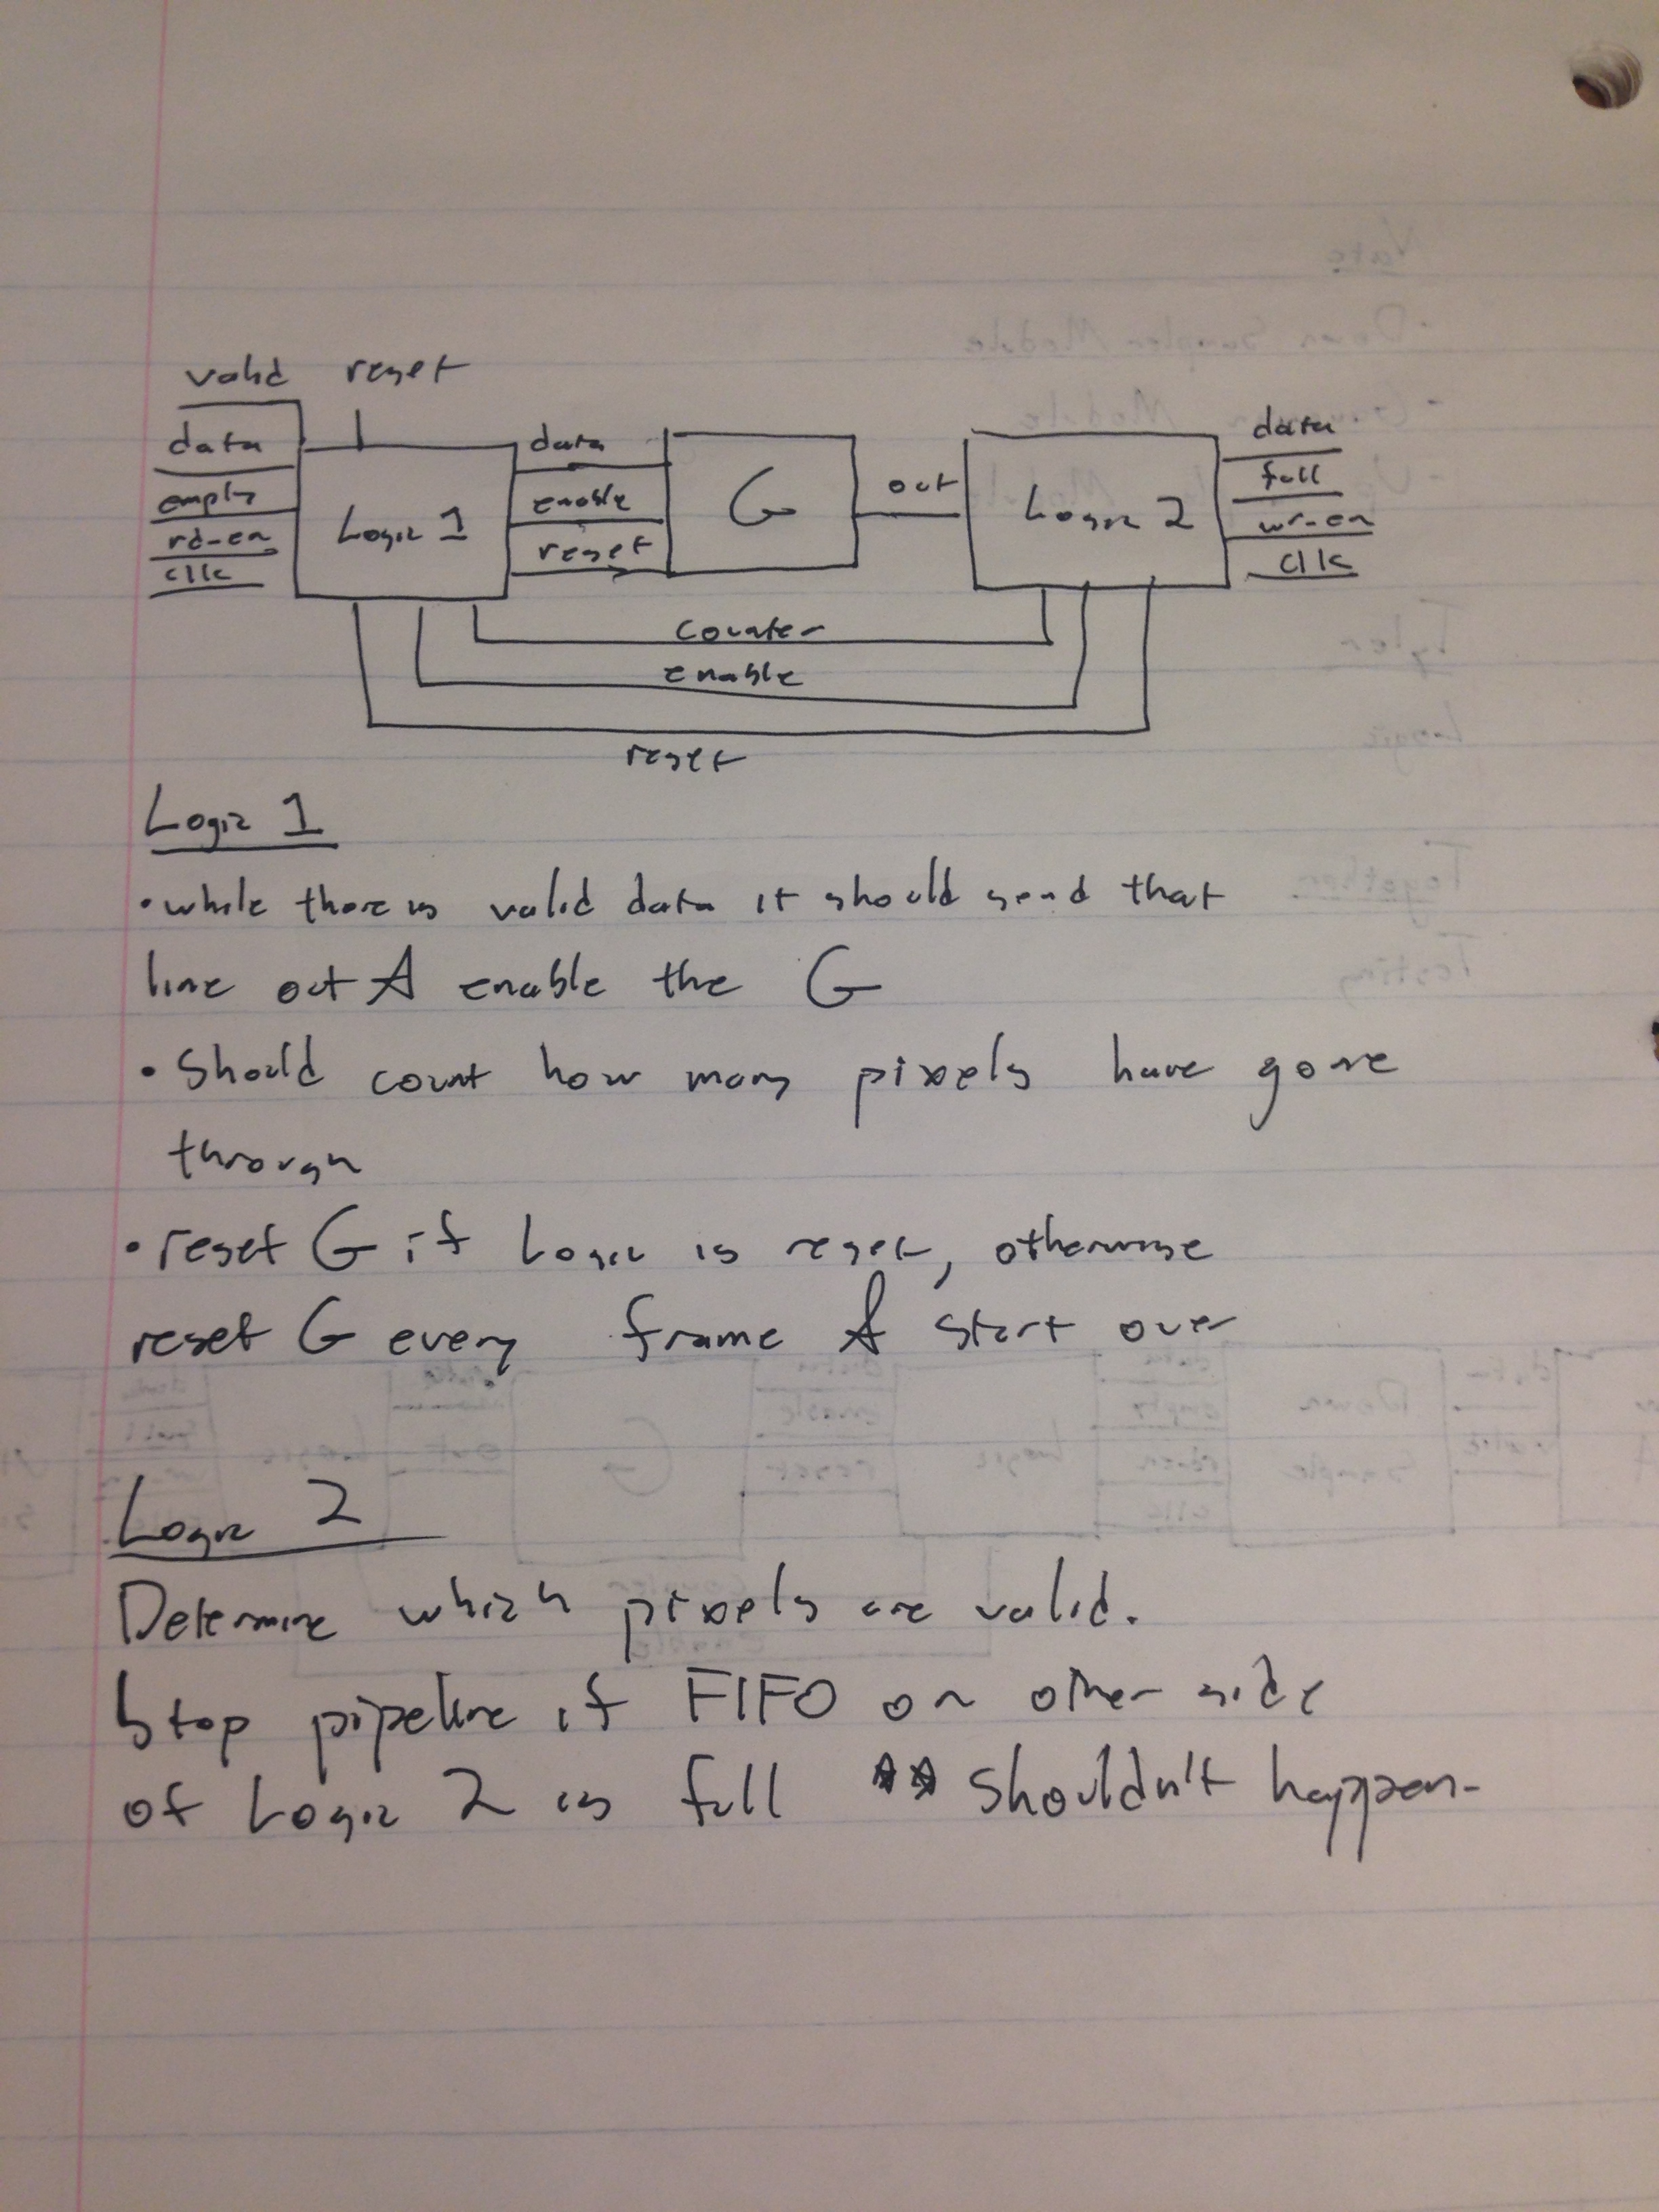 valid reset
data
empty
rd-en
clk
Logic 1
data
enable
reset
G
out
Logic 2
data
full
wr-en
clk
counter
enable
reset
Logic 1
• while there is valid data it should send that
line out & enable the G
• Should count how many pixels have gone
through
• reset G if Logic is reset, otherwise
reset G every frame & start over
Logic 2
Determine which pixels are valid.
Stop pipeline if FIFO on other side
of Logic 2 is full ** shouldn't happen-
Note
- Down Sampler Module
Module
Tyler
Logic
Together
Testing